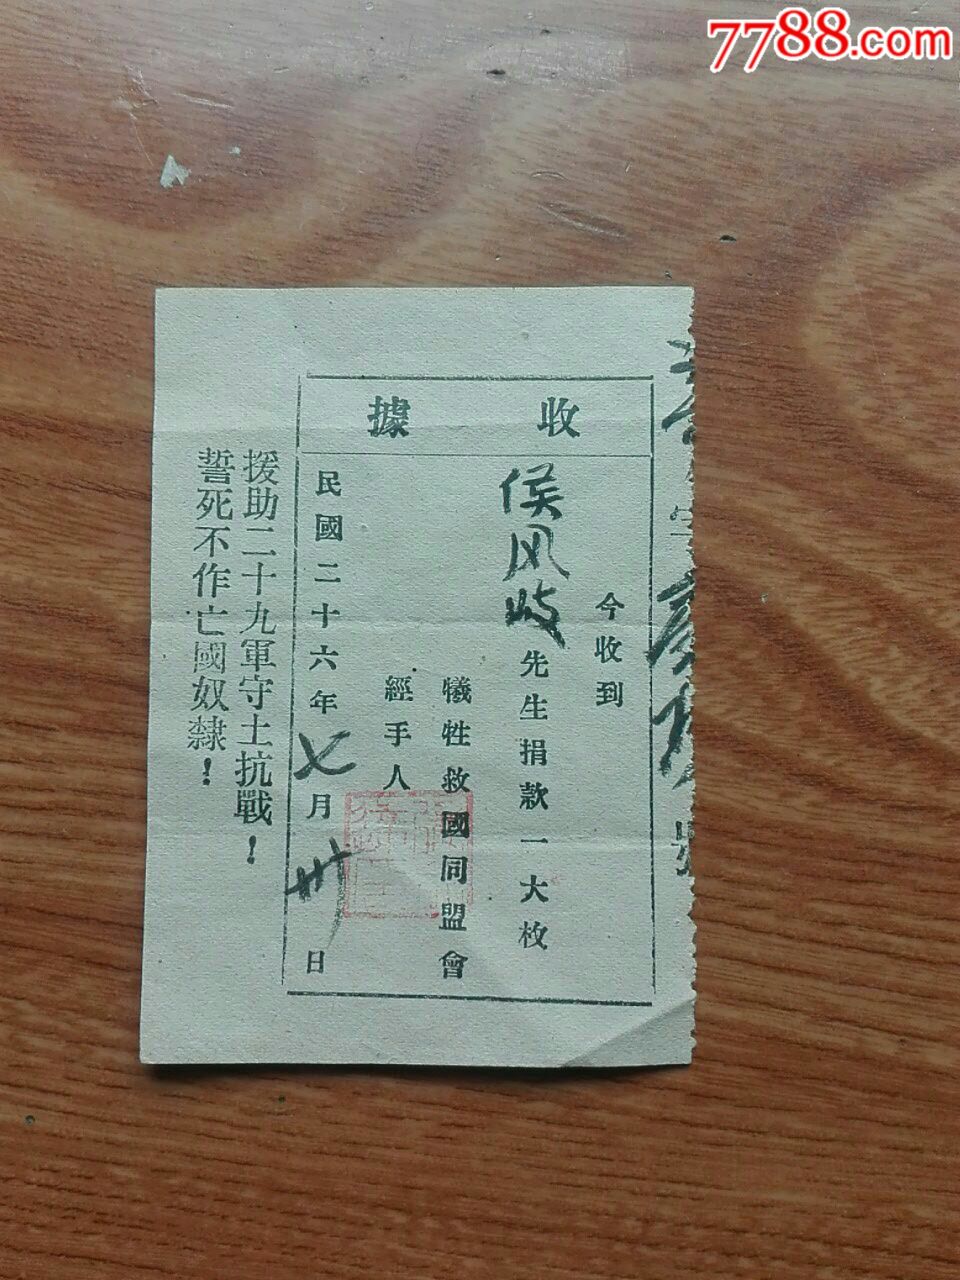 7788.com
收據
今收到
侯风岐先生捐款一大枚
犠牲救國同盟會
經手人
民國二十六年七月卅日
援助二十九軍守土抗戰！
誓死不作亡國奴隸！